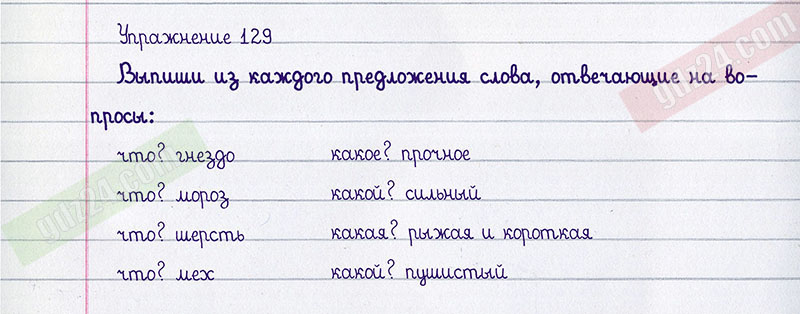 Упражнение 129
Выпиши из каждого предложения слова, отвечающие на во-
просы:
что? гнездо какое? прочное
что? мороз какой? сильный
что? шерсть какая? рыжая и короткая
что? мех какой? пушистый
gdz24.com
gdz24.com